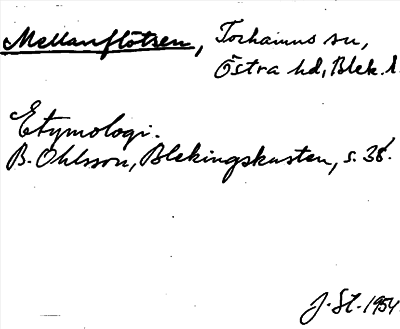 Mellanflötsen, Torhamns sn,
Östra hd, Blek. l.
Etymologi.
B. Ohlsson, Blekingskusten, s. 38.
J. St. 1954.